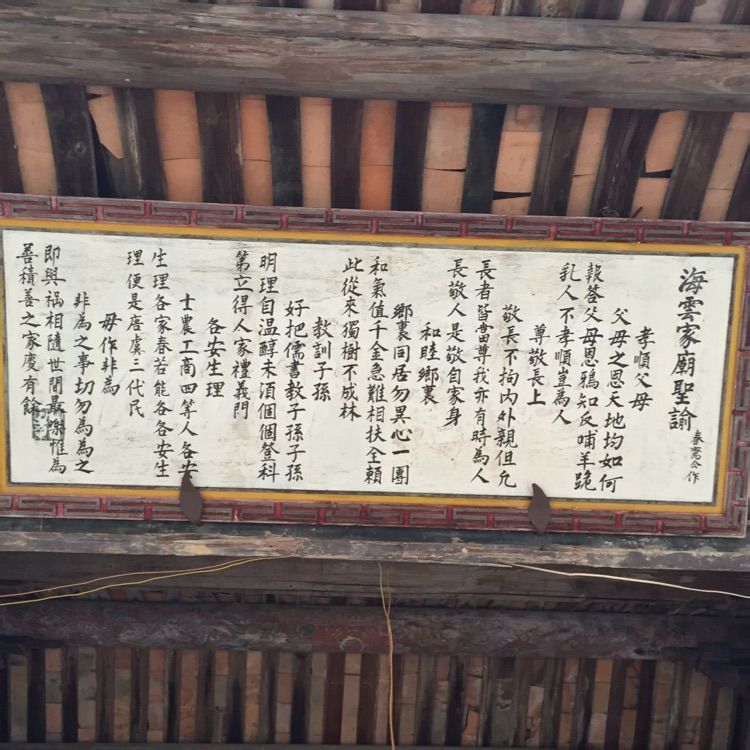 海雲家廟聖諭
春齋公作
孝順父母
父母之恩天地均如何
報答父母恩鴉知反哺羊跪
乳人不孝順豈為人
尊敬長上
敬長不拘内外親但凡
長者皆當尊我亦有時為人
長敬人是敬自家身
和睦鄉裏
鄉裏同居勿異心一團
和氣值千金急難相扶全賴
此從來獨樹不成林
教訓子孫
好把儒書教子孫子孫
明理自温醇未須個個登科
第立得人家禮義門
各安生理
士農工商四等人各安
生理各家春若能各各安生
理便是唐虞三代民
毋作非為
非為之事切勿為為之
即與禍相隨世間最樂惟為
善積善之家慶有餘